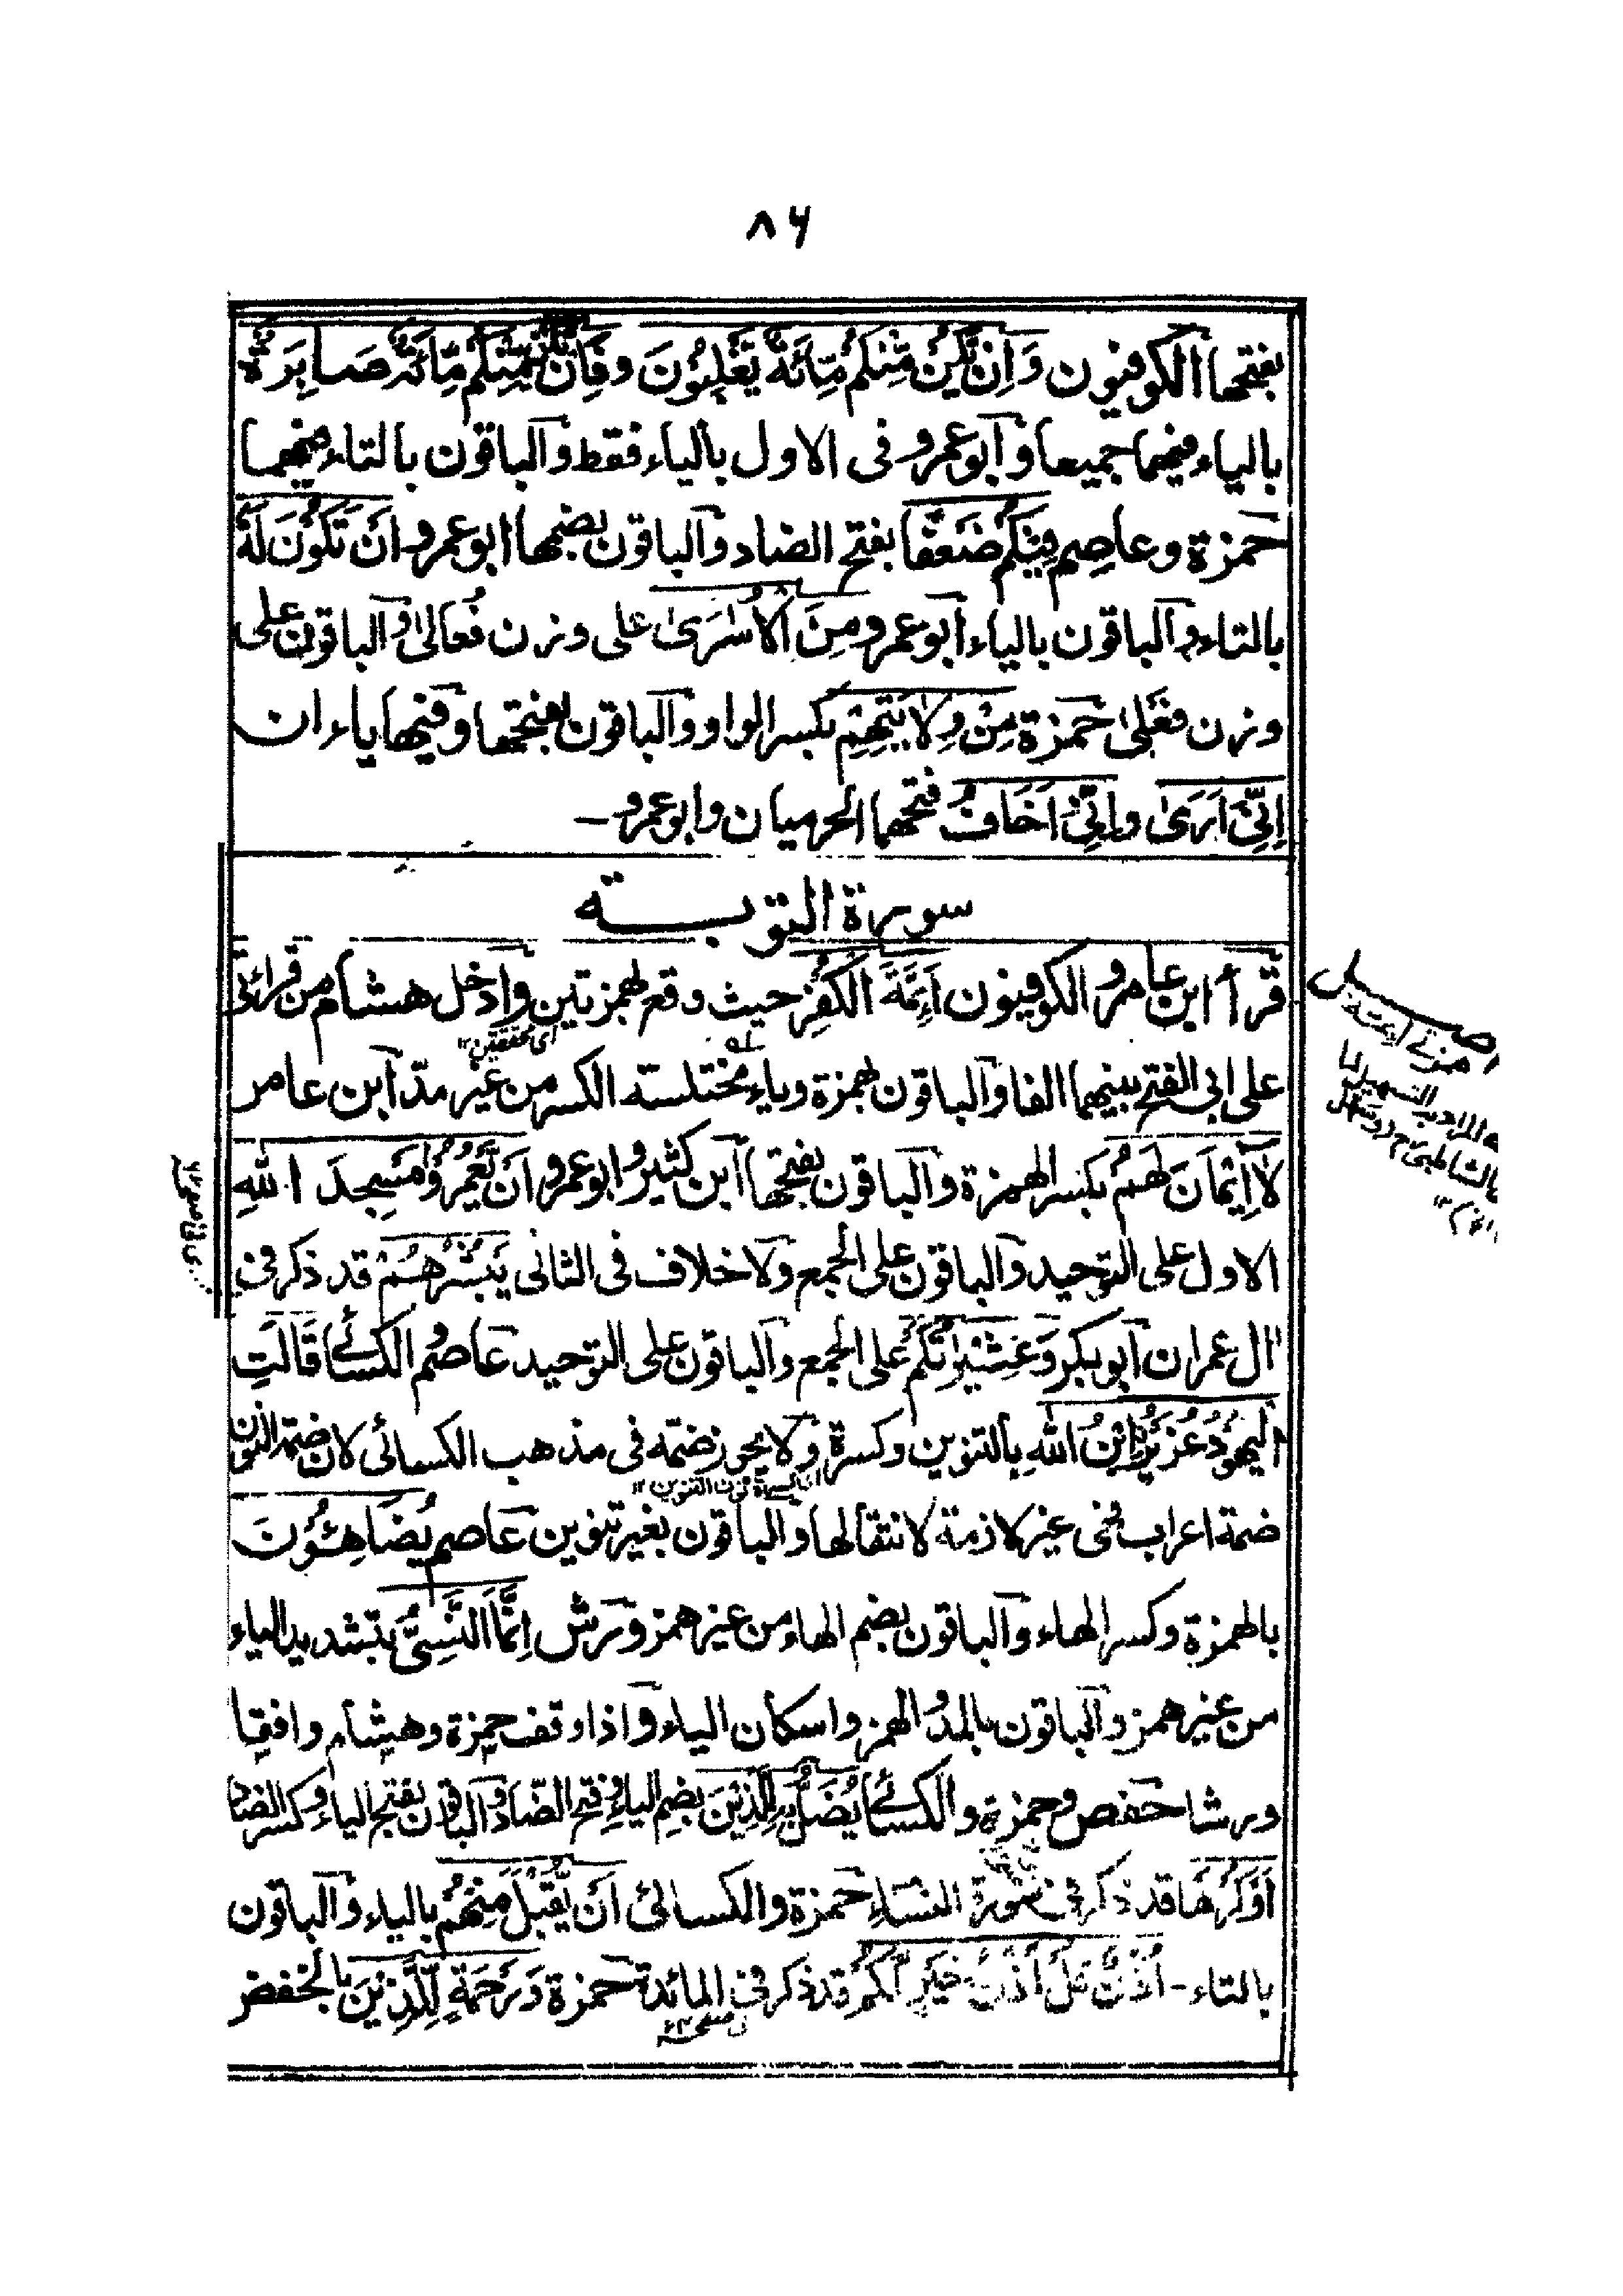 ٨٦
بفتحها الكوفيون وَاِنْ يَّكُنْ مِّنْكُمْ مِّائَةٌ يَّغْلِبُوْنَ وفَاِنْ يَّكُنْ مِّنْكُمْ مِّائَةٌ صَابِرَةٌ
بالياء فيهما جميعا وابوعمرو فى الاول بالياء فقط والباقون بالتاء فيهما
حمزة وعاصم فِيْكُمْ ضَعْفًا بفتح الضاد والباقون بضمها ابوعمرو اَنْ تَكُوْنَ لَهٗ
بالتاء والباقون بالياء ابوعمرو مِنَ الْاُسٰرٰى على وزن فُعالىٰ والباقون على
وزن فَعْلىٰ حمزة مِنْ وِلَايَتِهِمْ بكسر الواو والباقون بفتحها وفيها ياء ان
اِنِّىْ اَرٰى واِنِّىْ اَخَافُ فتحهما الحرميان وابوعمرو ـ
سورة التوبـــة
قرأ ابن عامر والكوفيون اَئِمَّةَ الْكُفْرِ حيث وقع بهمزتين وادخل هشام من قرائتى
اى محققتين ١٢
على ابى الفتح بينهما الفا والباقون بهمزة وياء مختلسة الكسر من غير مدّ ابن عامر
لَا اِيْمَانَ لَهُمْ بكسر الهمزة والباقون بفتحها ابن كثير وابوعمرو اَنْ يَّعْمُرُوْا مَسٰجِدَ اللهِ
الاول على التوحيد والباقون على الجمع ولاخلاف فى الثانى يُبَشِّرُهُمْ قد ذكر فى
اٰل عمران ابوبكر وَعَشِيْرَاتُكُمْ على الجمع والباقون على التوحيد عاصم الكسائے قَالَتِ
الْيَهُوْدُ عُزَيْرٌ ابْنُ اللهِ بالتنوين وكسرة ولا يجوز ضمّه فى مذهب الكسائى لان ضمة النون
ضمة اعراب فهى غير لازمة لانتقالها والباقون بغير تنوين عاصم يُضَاهِئُوْنَ
بالهمزة وكسر الهاء والباقون بضم الهاء من غير همز ورش اِنَّمَا النَّسِىُّ بتشديد الياء
من غير همز والباقون بالمد والهمز واسكان الياء واذا وقف حمزة وهشام وافقا
ورشا حفص وحمزة والكسائے يُضَلُّ بِهِ الَّذِيْنَ بضم الياء وفتح الضاد والباقون بفتح الياء وكسر الضاد
اَوْكَرْهًا قد ذكر فى سورة النساء حمزة والكسائى اَنْ يُّقْبَلَ مِنْهُمْ بالياء والباقون
بالتاء - اُذُنٌ قُلْ اُذُنُ خَيْرٍ لَّكُمْ قد ذكر فى المائدة حمزة وَرَحْمَةٍ لِّلَّذِيْنَ بالخفض